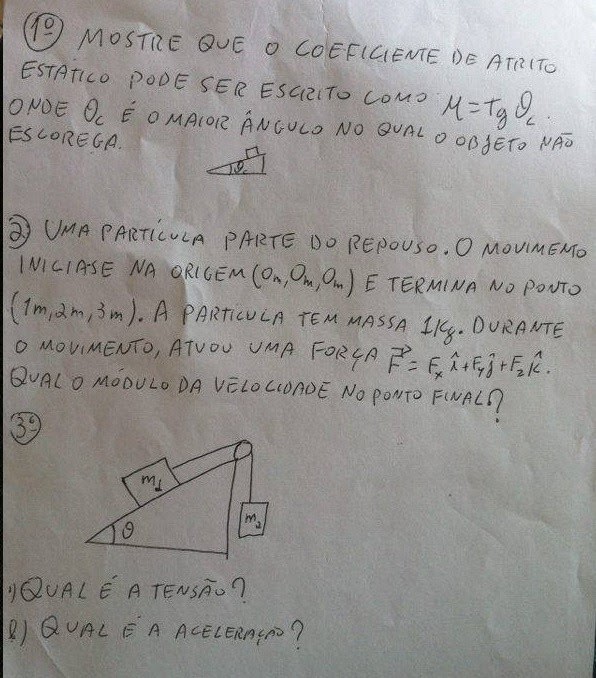 1º) MOSTRE QUE O COEFICIENTE DE ATRITO
ESTÁTICO PODE SER ESCRITO COMO M=Tg θc.
ONDE θc É O MAIOR ÂNGULO NO QUAL O OBJETO NÃO
ESCOREGA.
θ
2) UMA PARTÍCULA PARTE DO REPOUSO. O MOVIMEMO
INICIASE NA ORIGEM (0m,0m,0m) E TERMINA NO PONTO
(1m,2m,3m). A PARTÍCULA TEM MASSA 1Kg. DURANTE
O MOVIMENTO, ATUOU UMA FORÇA F⃗ = Fx î+Fy ĵ+Fz k̂.
QUAL O MÓDULO DA VELOCIDADE NO PONTO FINAL?
3º)
m1
θ
m2
1) QUAL É A TENSÃO?
2) QUAL É A ACELERAÇÃO?